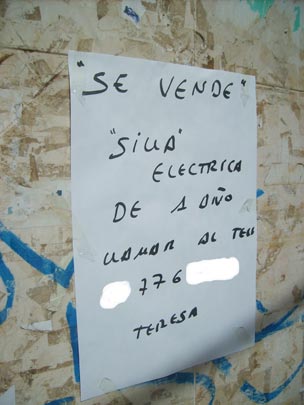 "SE VENDE"
"SILLA"
ELECTRICA
DE 1 AÑO
LLAMAR AL TELL
776
TERESA